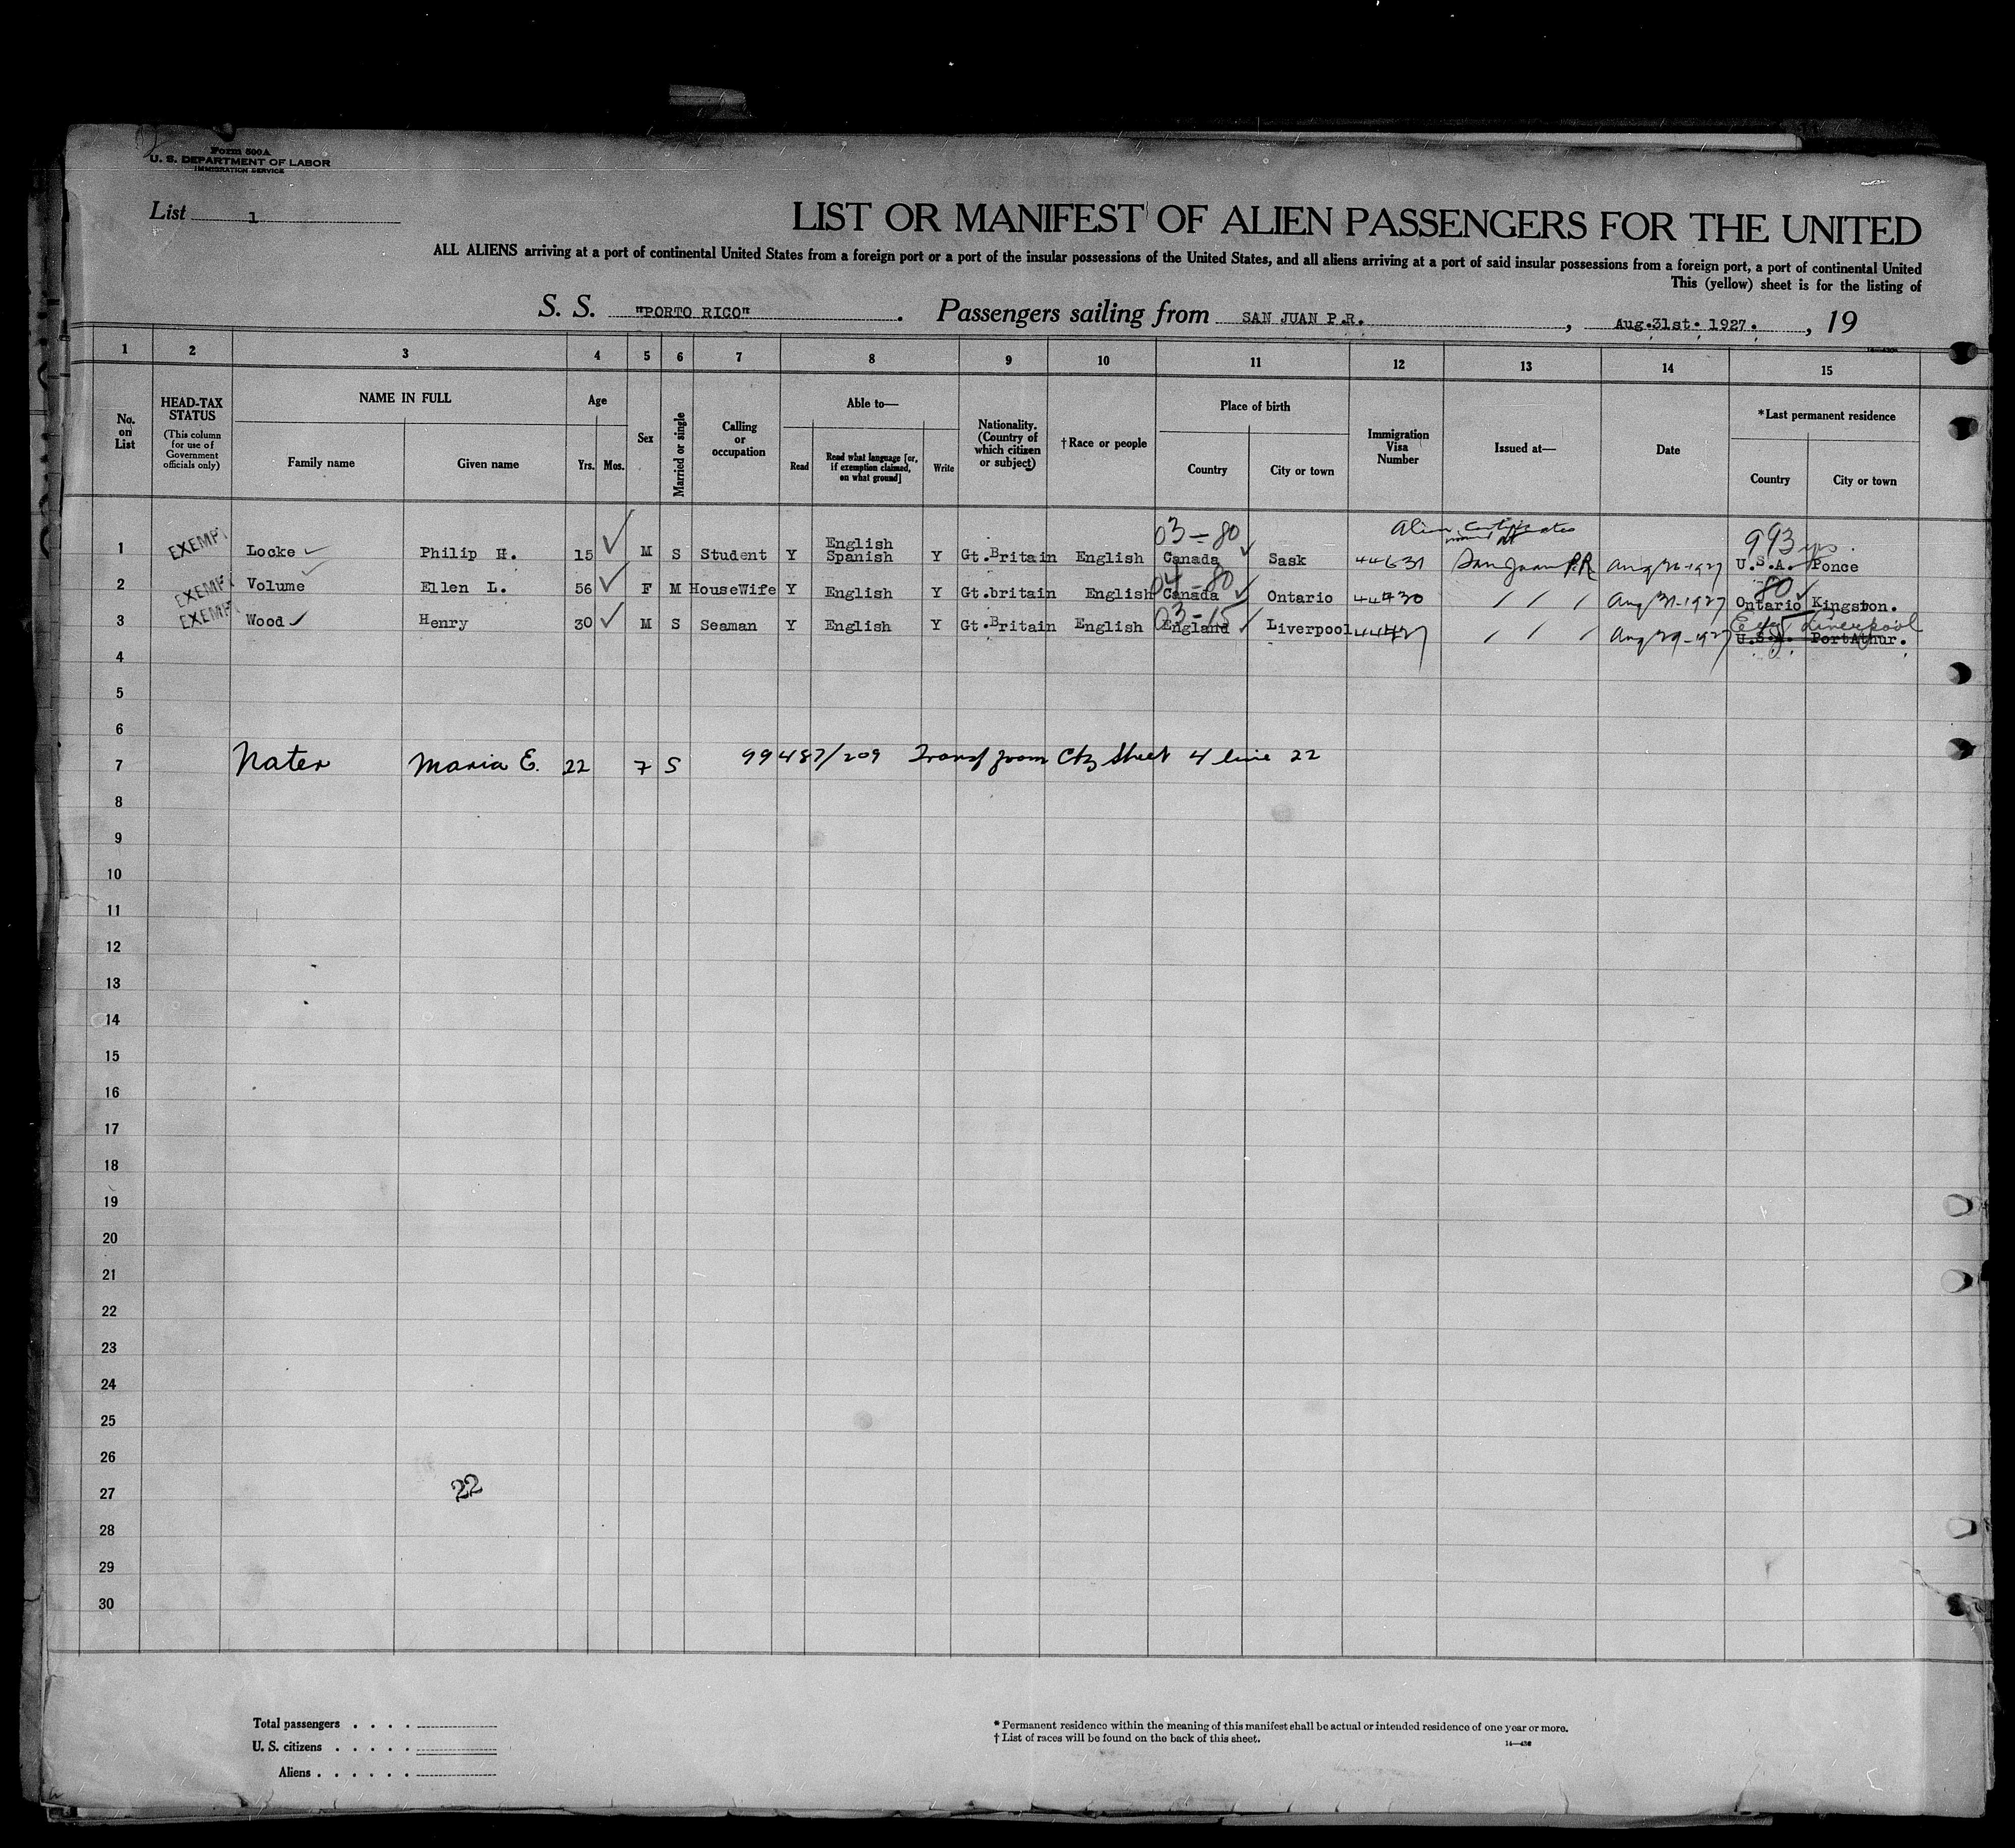 Form 500A
U. S. DEPARTMENT OF LABOR
IMMIGRATION SERVICE
List 1
LIST OR MANIFEST OF ALIEN PASSENGERS FOR THE UNITED
ALL ALIENS arriving at a port of continental United States from a foreign port or a port of the insular possessions of the United States, and all aliens arriving at a port of said insular possessions from a foreign port, a port of continental United
This (yellow) sheet is for the listing of
S. S. "PORTO RICO". Passengers sailing from SAN JUAN P.R., Aug.31st. 1927., 19
1 2 3 4 5 6 7 8 9 10 11 12 13 14 15
No. on List
HEAD-TAX STATUS (This column for use of Government officials only)
NAME IN FULL
Family name
Given name
Age
Yrs. Mos.
Sex
Married or single
Calling or occupation
Able to—
Read
Read what language [or, if exemption claimed, on what ground]
Write
Nationality. (Country of which citizen or subject)
†Race or people
Place of birth
Country
City or town
Immigration Visa Number
Issued at—
Date
*Last permanent residence
Country
City or town
03-80 Alien Certificates 993
1 EXEMPT Locke Philip H. 15 M S Student Y English Spanish Y Gt.Britain English Canada Sask 44631 San Juan P.R Aug 26-1927 U.S.A. Ponce
04-80 80
2 EXEMPT Volume Ellen L. 56 F M HouseWife Y English Y Gt.britain English Canada Ontario 44730 / / / Aug 31-1927 Ontario Kingston.
03-15 Liverpool
3 EXEMPT Wood Henry 30 M S Seaman Y English Y Gt.Britain English England Liverpool / / / Aug 29-1927 U.S.A. PortAthur.
4
5
6
7 Nater Maria E. 22 7 S 99487/209 Transf from Ctz Sheet 4 line 22
8
9
10
11
12
13
14
15
16
17
18
19
20
21
22
23
24
25
26
27 22
28
29
30
Total passengers . . . .
U. S. citizens . . . . .
Aliens . . . . . .
* Permanent residence within the meaning of this manifest shall be actual or intended residence of one year or more.
† List of races will be found on the back of this sheet.
14—430